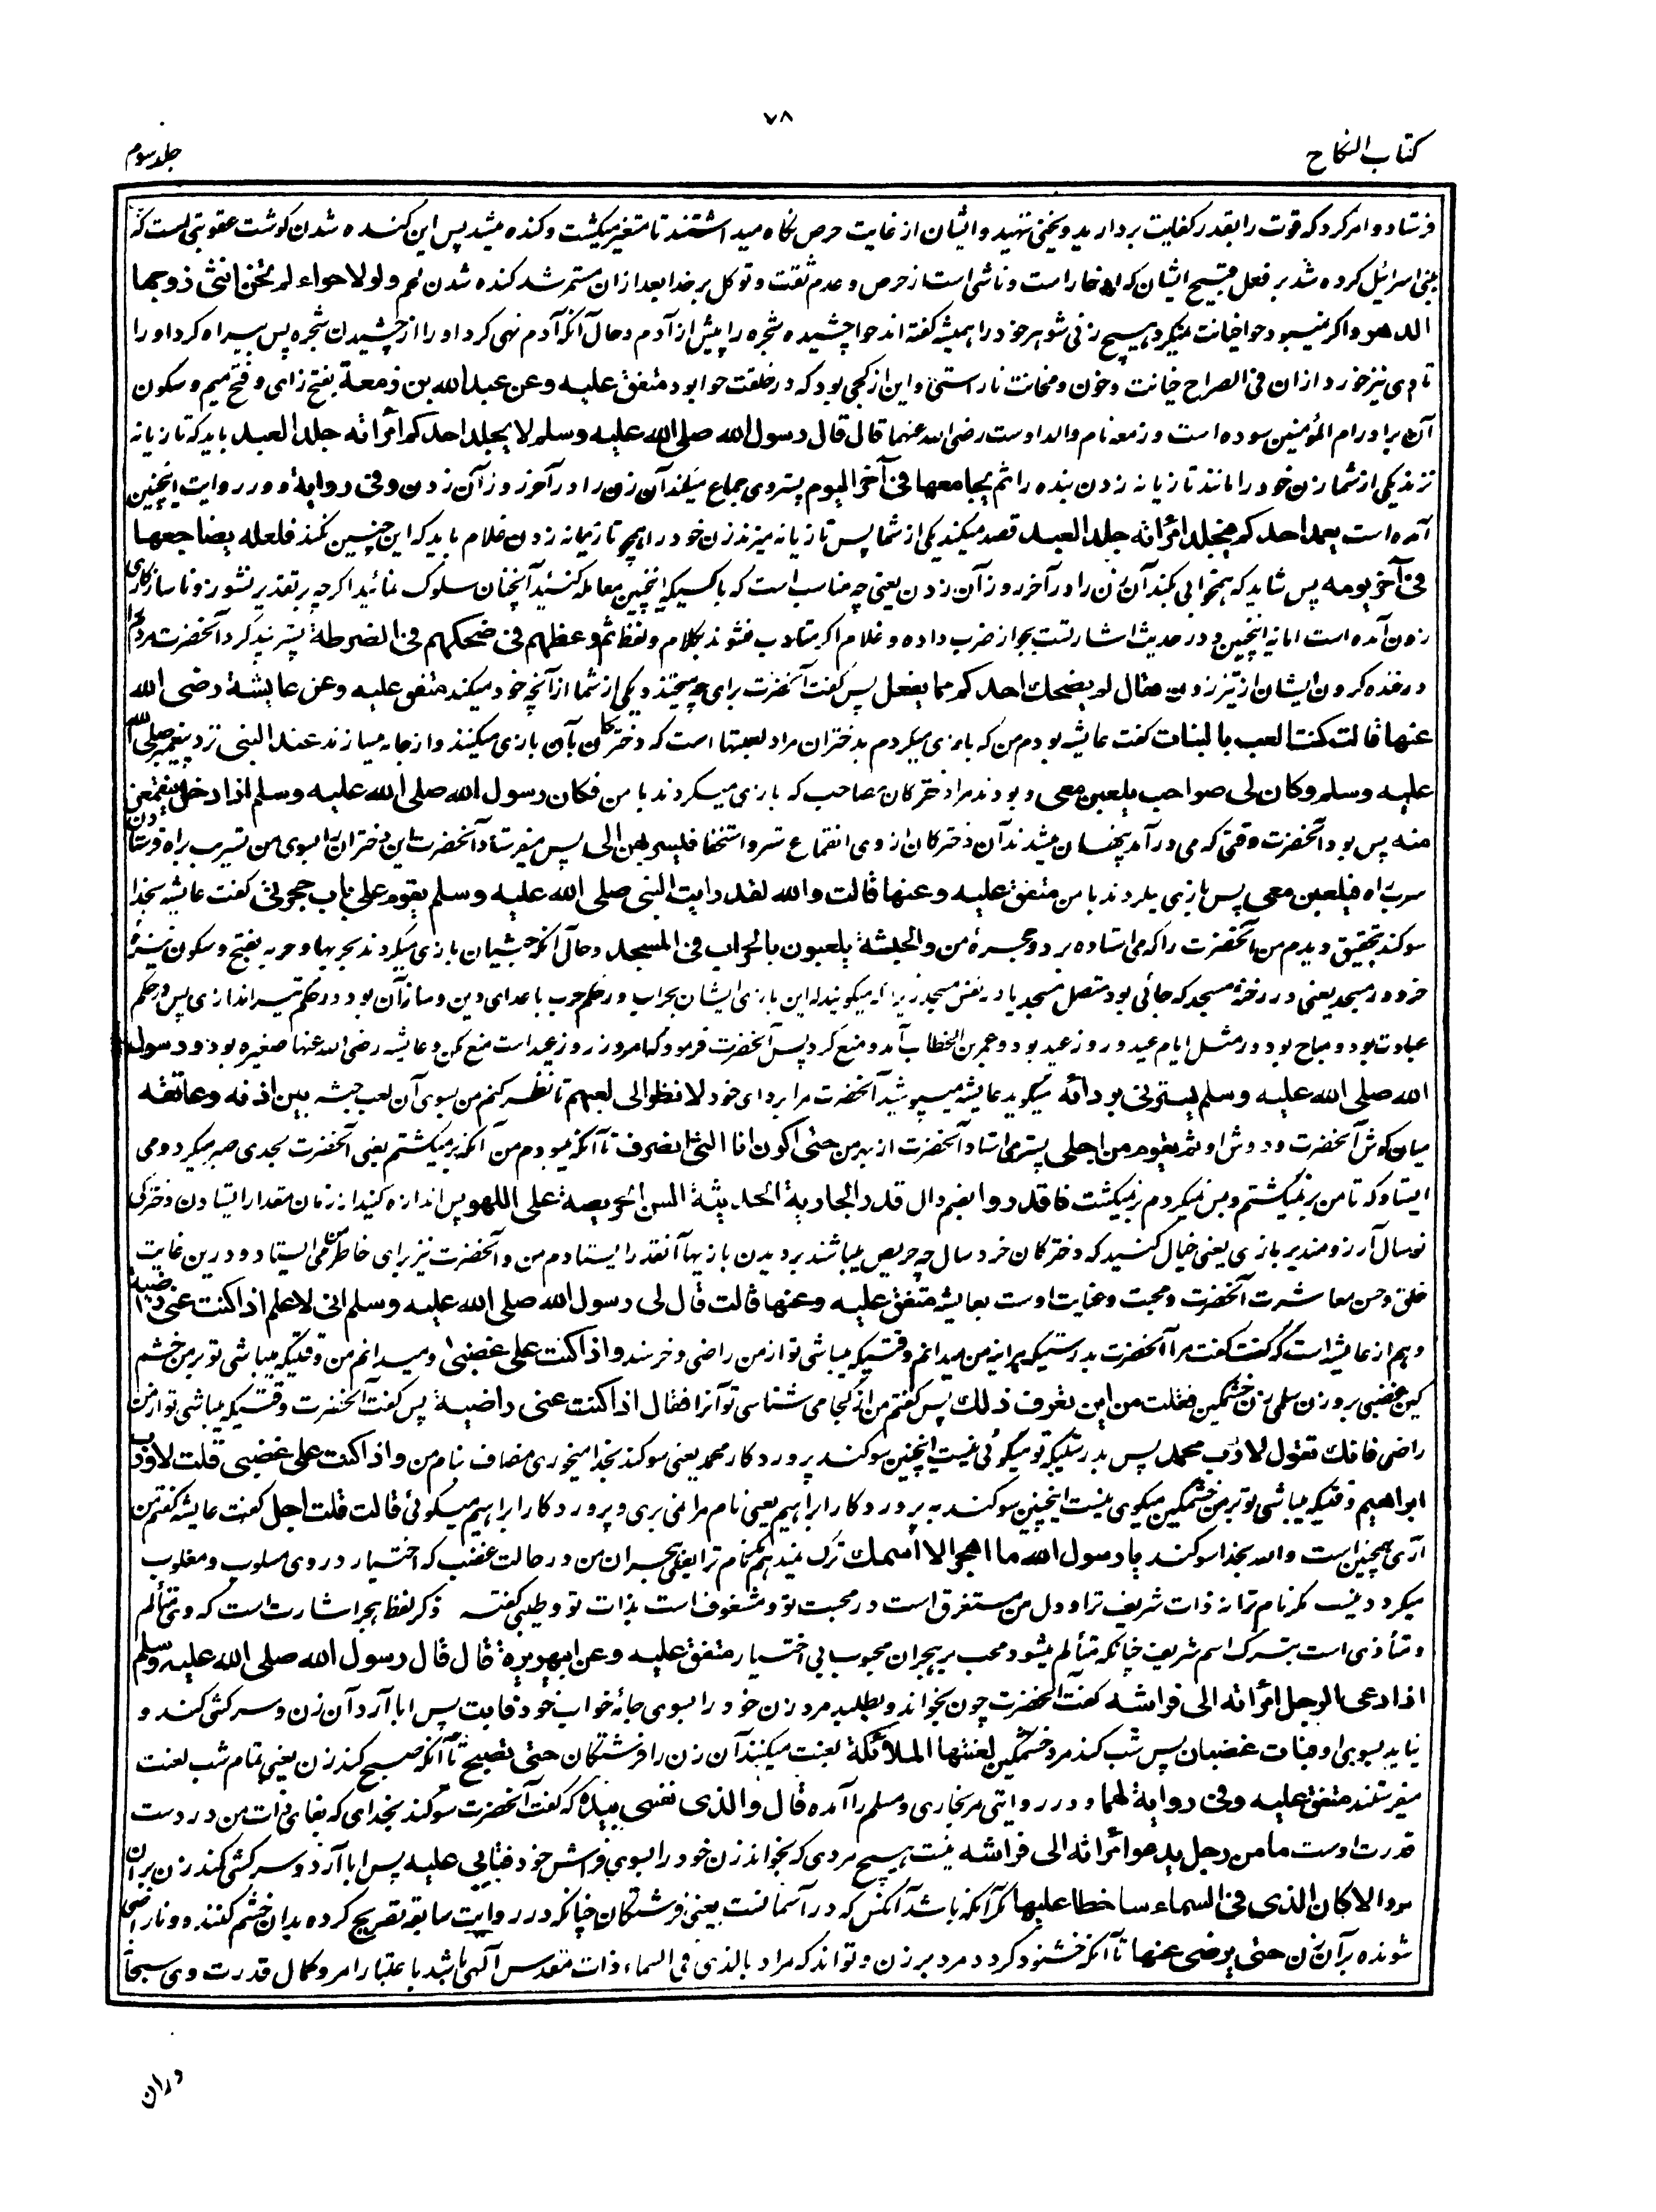 ۷۸
کتاب النکاح
جلد سوم
فرستاد و امر کرد که قوت را بقدر کفایت بردارید و یخنی ننهید و ایشان از غایت حرص نگاه میداشتند تا متغیر میگشت و کنده میشد پس این کنده شدن کوشت عقوبتی است که
بنی اسرائیل کرده شد بر فعل قبیح ایشان که ادخار است و ناشی است از حرص و عدم ثقت و توکل بر خدا بعد ازان مستمر شد کنده شدن لحم ولولا حواء لم تخن انثی زوجها
الدهر و اکر نمیبود حوا خیانت نمیکرد هیچ زنی شوهر خود را همیشه کفته اند حوا چشیده شجره را پیش از آدم و حال آنکه آدم نهی کرد او را از چشیدن شجره پس بیراه کرد او را
تا وی نیز خورد ازان فی الصراح خیانت و خون و مخانت ناراستی و این از کجی بود که در خلقت حوا بود متفق علیه وعن عبد الله بن زمعة بفتح زای و فتح میم و سکون
آن برادر ام المؤمنین سوده است و زمعه نام والد اوست رضی الله عنهما قال قال رسول الله صلی الله علیه وسلم لا یجلد احدکم امرأته جلد العبد باید که تازیانه
نزند یکی از شما زن خود را مانند تازیانه زدن بنده را ثم یجامعها فی آخر الیوم پستر وی جماع میکند آن زن را در آخر روز آن زدن وفی روایة و در روایت اینچنین
آمده است یعمد احدکم فیجلد امرأته جلد العبد قصد میکند یکی از شما پس تازیانه میزند زن خود را همچو تازیانه زدن غلام باید که این چنین نکند فلعله یضاجعها
فی آخر یومه پس شاید که همخوابی کند آن زن را در آخر روز آن زدن یعنی چه مناسب است که با کسیکه اینچنین معامله کنید آنچنان سلوک نمائید اکرچه بر تقدیر نشوز و ناسازکاری
زدن آمده است اما نه اینچنین و در حدیث اشارتست بجواز ضرب داده و غلام اکر متادب نشوند بکلام و نعظ ثم وعظهم فی ضحکهم فی الضرطة پستر پند کرد آنحضرت مردم را
در خنده کردن ایشان از تیز زدن فقال لم یضحک احدکم مما یفعل پس کفت آنحضرت برای چه میخندد یکی از شما از آنچه خود میکند متفق علیه وعن عایشة رضی الله
عنها قالت کنت العب بالبنات کفت عایشه بودم من که بازی میکردم بدختران مراد لعبتها است که دخترکان بآن بازی میکنند و از جامه میسازند عند النبی نزد پیغمبر صلی الله
علیه وسلم وکان لی صواحب یلعبن معی و بودند مرا دخترکان مصاحب که بازی میکردند با من فکان رسول الله صلی الله علیه وسلم اذا دخل ینقمعن
منه پس بود آنحضرت وقتی که می درآمد پنهان میشدند آن دخترکان از وی انقماع تستر و استخفا فیسربهن الی پس میفرستاد آنحضرت این دختران را بسوی من تسریب براه فرستادن
سرب راه فیلعبن معی پس بازی میکردند با من متفق علیه وعنها قالت والله لقد رایت النبی صلی الله علیه وسلم یقوم علی باب حجرتی کفت عایشه بخدا
سوکند بتحقیق دیدم من آنحضرت را که می استاده بر در حجرۀ من والحبشة یلعبون بالحراب فی المسجد و حال آنکه حبشیان بازی میکردند بحربها و حربه بفتح و سکون نیزۀ
خرد در مسجد یعنی در رحبۀ مسجد که جائی بود متصل مسجد یا در نفس مسجد زیرا که میکویند که این بازی ایشان بحراب در حکم حرب با اعدای دین و ساز آن بود در حکم تیر اندازی پس در حکم
عبادت بود و مباح بود در مثل ایام عید و روز عید بود و عمر بن الخطاب آمد و منع کرد پس آنحضرت فرمود که امروز روز عید است منع مکن و عایشه رضی الله عنها صغیره بود ورسول
الله صلی الله علیه وسلم یسترنی بردائه میکوید عایشه میپوشید آنحضرت مرا بردای خود لانظر الی لعبهم تا نظر کنم من بسوی آن لعب حبشه بین اذنه وعاتقه
میان کوش آنحضرت و دوش او ثم یقوم من اجلی پستر می استاد آنحضرت از بهر من حتی اکون انا التی انصرف تا آنکه میبودم من آنکه بر میکشتم یعنی آنحضرت بحدی صبر میکرد و می
ایستاد که تا من بر نمیکشتم و بس نمیکردم بر نمیکشت فاقدروا بضم دال قدر الجاریة الحدیثة السن الحریصة علی اللهو پس اندازه کنید از زمان مقدار ایستادن دخترکی
نوسال آرزومند بر بازی یعنی خیال کنید که دخترکان خرد سال چه حریص میباشند بر دیدن بازیها آنقدر را ایستادم من و آنحضرت نیز برای خاطر من می ایستاد و درین غایت
خلق و حسن معاشرت آنحضرت و محبت و عنایت اوست بعایشه متفق علیه وعنها قالت قال لی رسول الله صلی الله علیه وسلم انی لاعلم اذا کنت عنی راضیة
و هم از عایشه است که کفت کفت مرا آنحضرت بدرستیکه هرآینه من میدانم وقتیکه میباشی تو از من راضی و خرسند واذا کنت علی غضبی و میدانم من وقتیکه میباشی تو بر من خشم
کین غضبی بر وزن سلمی زن خشمکین فقلت من این تعرف ذلک پس کفتم من از کجا می شناسی تو آنرا فقال اذا کنت عنی راضیة پس کفت آنحضرت وقتیکه میباشی تو از من
راضی فانک تقول لا ورب محمد پس بدرستیکه تو میکوئی نیست اینچنین سوکند پروردکار محمد یعنی سوکند بخدا میخوری مضاف بنام من واذا کنت علی غضبی قلت لا ورب
ابراهیم وقتیکه میباشی تو بر من خشمکین میکوی نیست اینچنین سوکند به پروردکار ابراهیم یعنی نام مرا نمی بری و پروردکار ابراهیم میکوئی قالت قلت اجل کفت عایشه کفتم من
آری همچنین است والله بخدا سوکند یا رسول الله ما اهجر الا اسمک ترک نمیدهم مکر نام ترا یعنی هجران من در حالت غضب که اختیار در وی مسلوب و مغلوب
میکردد نیست مکر نام ترا نه ذات شریف ترا و دل من مستغرق است در محبت تو و مشغوف است بذات تو و طیبی کفته ذکر لفظ هجر اشارت است که وی متألم
و متأذی است بترک اسم شریف چنانکه متألم میشود محب بر هجران محبوب بی اختیار متفق علیه وعن ابی هریرة قال قال رسول الله صلی الله علیه وسلم
اذا دعی الرجل امرأته الی فراشه کفت آنحضرت چون بخواند و بطلبد مرد زن خود را بسوی جائه خواب خود فابت پس ابا آرد آن زن و سرکشی کند و
نیاید بسوی او فبات غضبان پس شب کند مرد خشمکین لعنتها الملائکة لعنت میکنند آن زن را فرشتکان حتی تصبح تا آنکه صبح کند زن یعنی تمام شب لعنت
میفرستند متفق علیه وفی روایة لهما و در روایتی مر بخاری و مسلم را آمده قال والذی نفسی بیده که کفت آنحضرت سوکند بخدای که بقای ذات من در دست
قدرت اوست ما من رجل یدعو امرأته الی فراشه نیست هیچ مردی که بخواند زن خود را بسوی فراش خود فتابی علیه پس ابا آرد و سرکشی کند زن بر آن
مرد الا کان الذی فی السماء ساخطا علیها مکر آنکه باشد آنکس که در آسمانست یعنی فرشتکان چنانکه در روایت سابقه تصریح کرده بدان خشم کننده و ناراضی
شونده بر آن زن حتی یرضی عنها تا آنکه خشنود کردد مرد بر زن و تواند که مراد بالذی فی السماء ذات مقدس آلهی باشد باعتبار امر و کمال قدرت وی سبحانه
دران